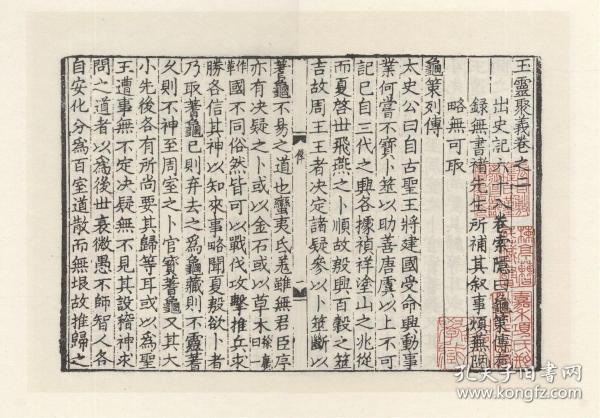 玉靈聚義卷之二
出史記六十八卷索隱曰龜策傳有
錄無書褚先生所補其叙事煩蕪陋
略無可取
龜策列傳
太史公曰自古聖王將建國受命興動事
業何嘗不寶卜筮以助善唐虞以上不可
記已自三代之興各據禎祥塗山之兆從
而夏啓世飛燕之卜順故殷興百穀之筮
吉故周王王者决定諸疑參以卜筮斷以
蓍龜不易之道也蠻夷氐羌雖無君臣序
亦有决疑之卜或以金石或以草木
國不同俗然皆可以戰伐攻擊推兵求
勝各信其神以知來事略聞夏殷欲卜者
乃取蓍龜已則弃去之爲龜藏則不靈蓍
久則不神至周室之卜官寶蓍龜又其大
小先後各有所尚要其歸等耳或以爲聖
王遭事無不定决疑無不見其設稽神求
問之道者以爲後世衰微愚不師智人各
自安化分爲百室道散而無垠故推歸之
孔夫子旧书网